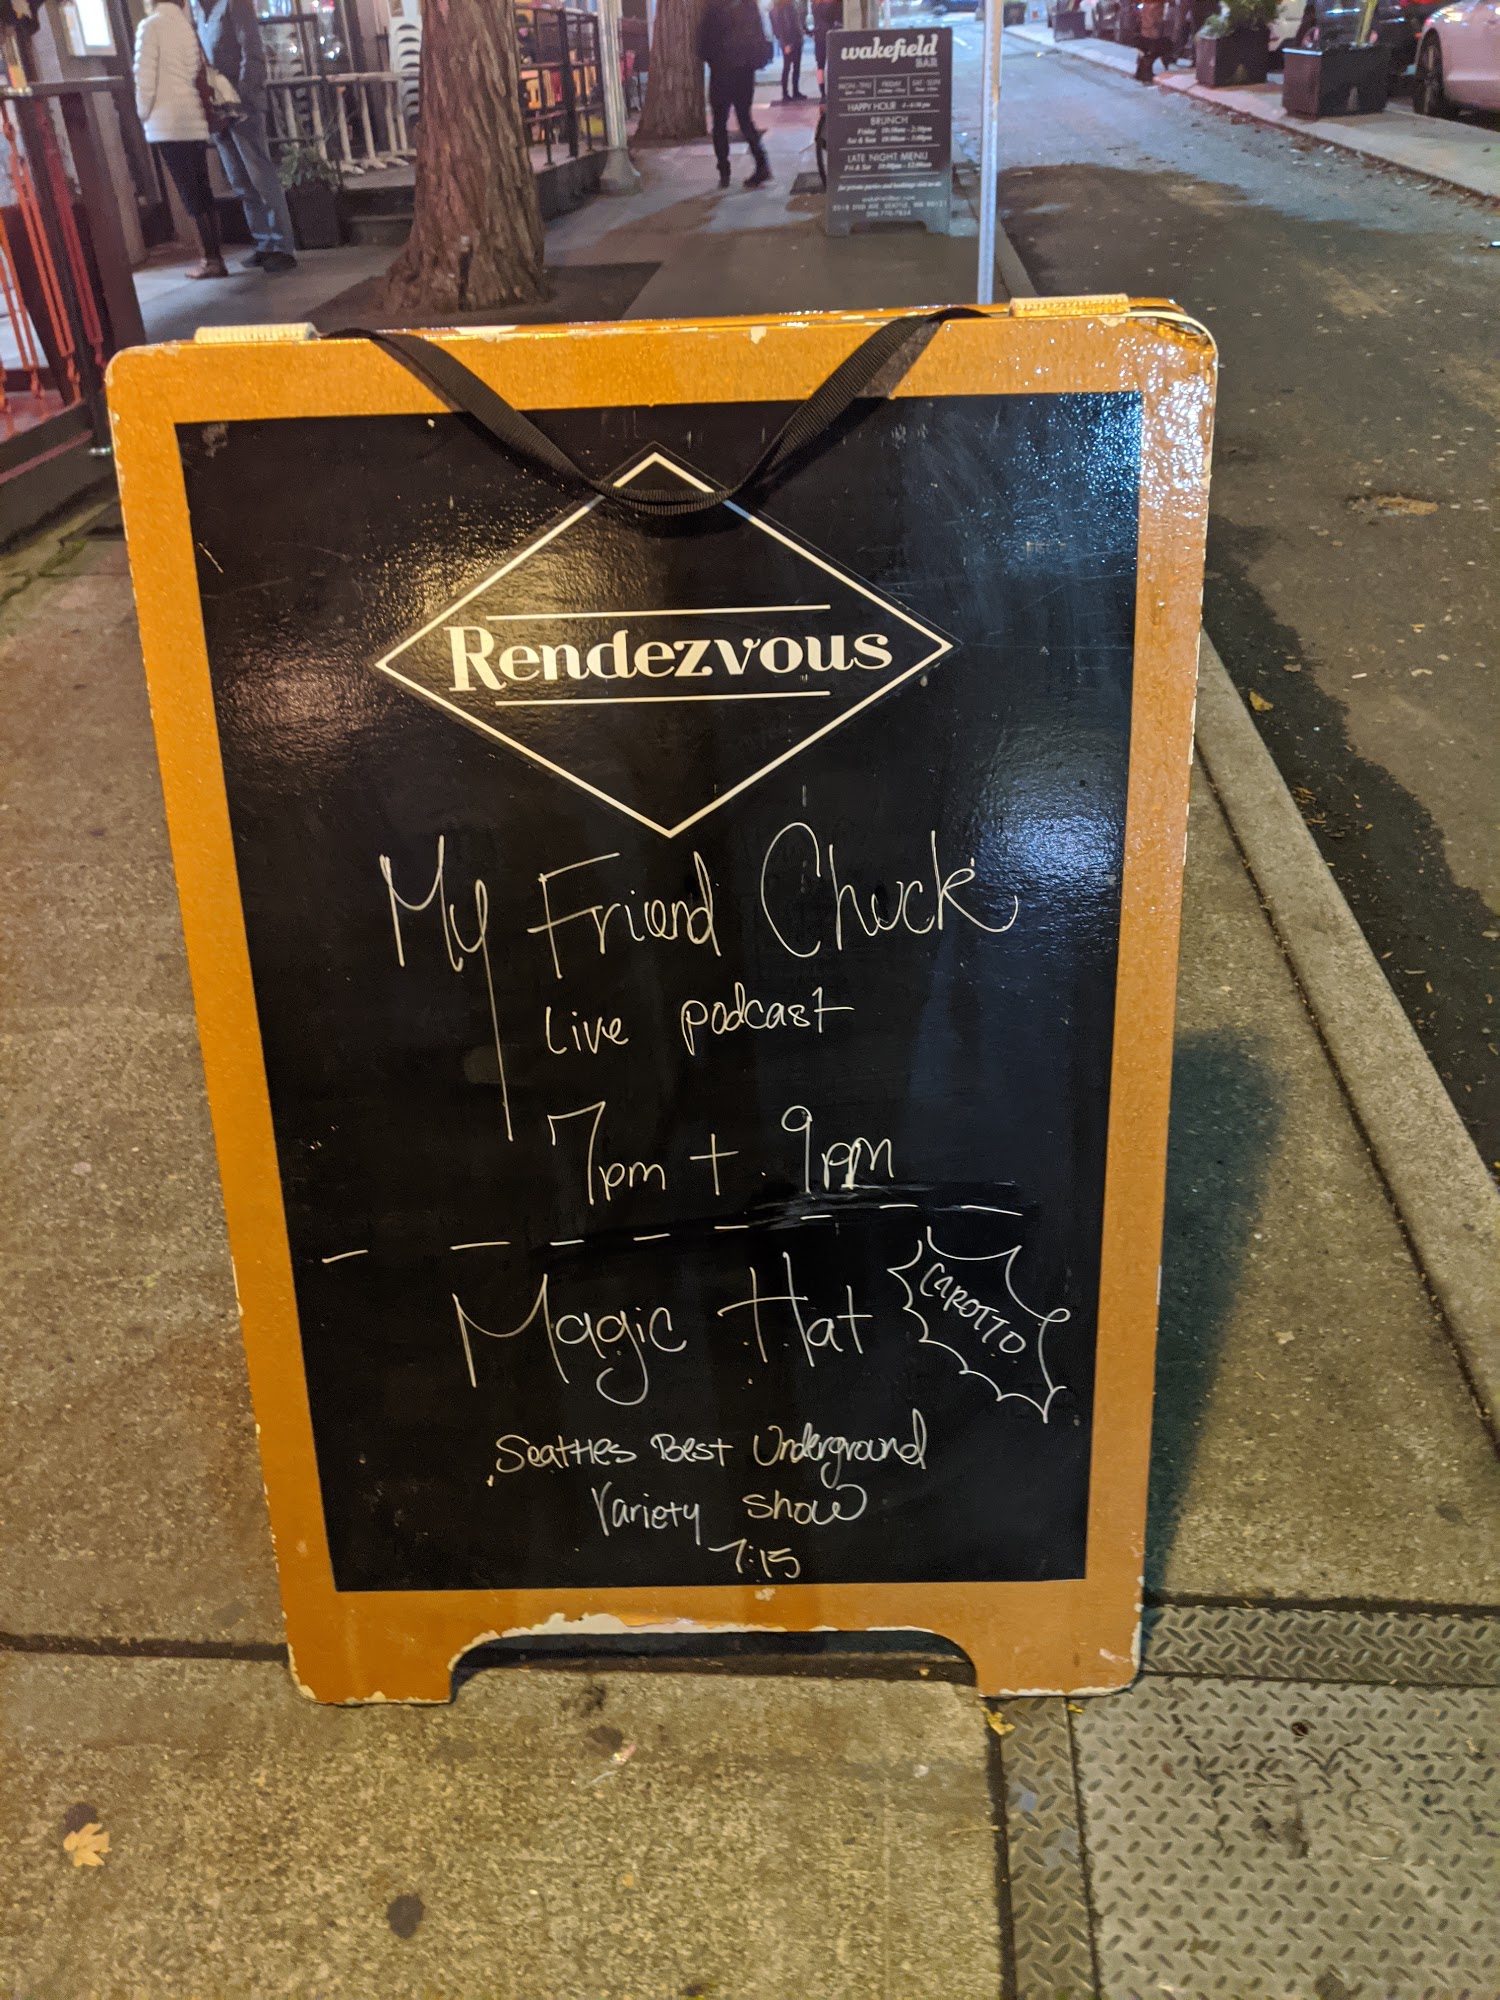 wakefield
BAR
MON - THU FRIDAY SAT - SUN
HAPPY HOUR
BRUNCH
Friday
Sat & Sun
LATE NIGHT MENU
Fri & Sat
for private parties and bookings
Rendezvous
My Friend Chuck
Live podcast
7pm + 9pm
Magic Hat
CAROTTO
Seattles Best Underground
Variety Show
7:15